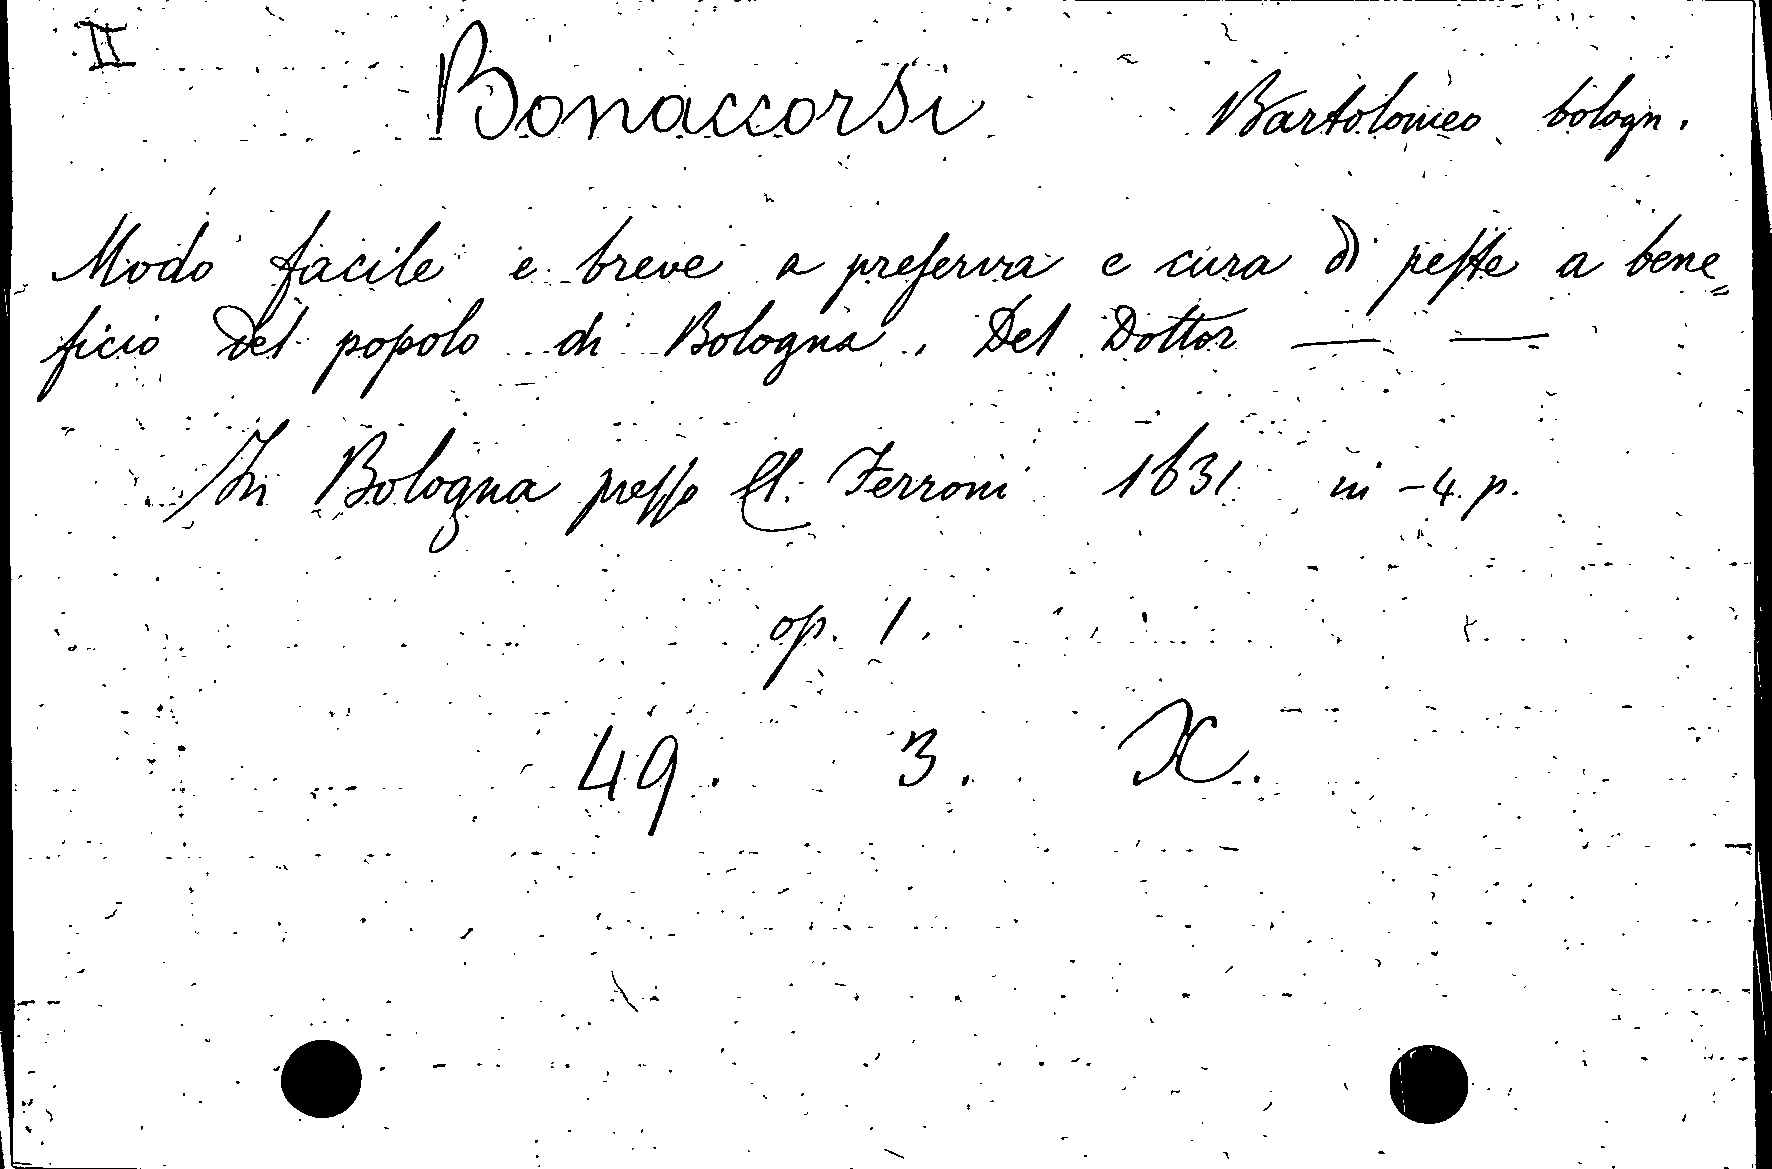 II
Bonaccorsi Bartolomeo bologn.
Modo facile e breve a preserva e cura di peste a bene=
ficio del popolo di Bologna. Del Dottor — —
In Bologna presso Cl. Ferroni 1631 in -4. p.
op. 1.
49. 3. X.